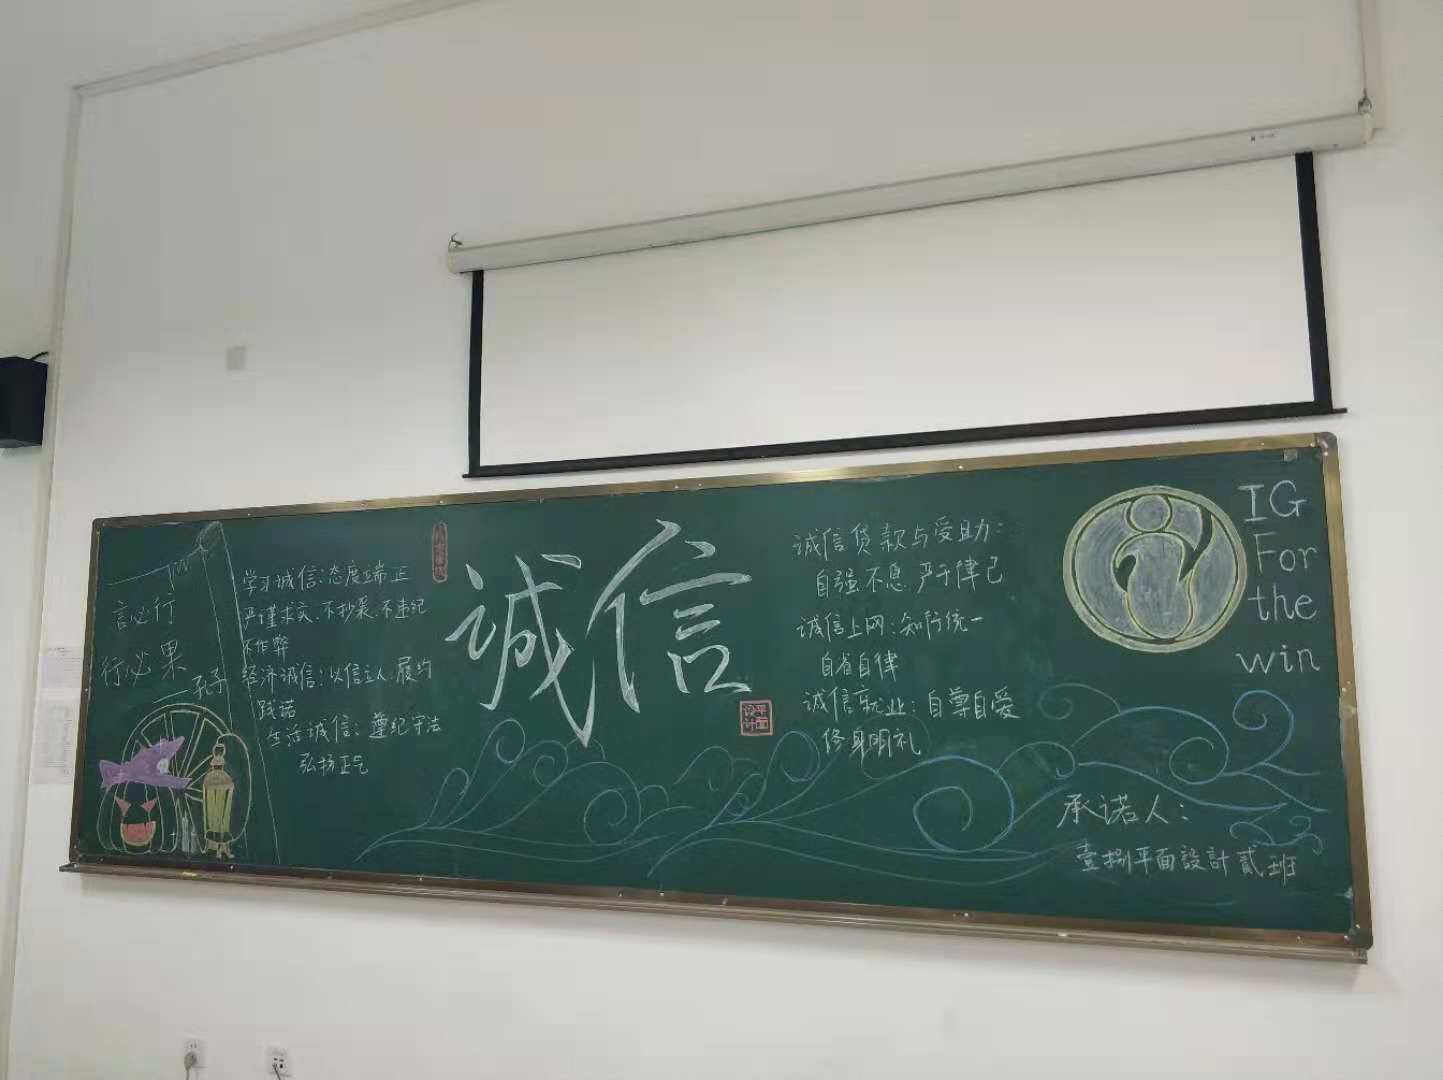 言必行
行必果
——孔子
学习诚信：态度端正
严谨求实、不抄袭、不违纪
不作弊
经济诚信：以信立人、履约
践诺
生活诚信：遵纪守法
弘扬正气
诚信
平面
设计
诚信贷款与受助：
自强不息、严于律己
诚信上网：知行统一
自省自律
诚信就业：自尊自爱
修身明礼
IG
For
the
win
承诺人：
壹捌平面設計贰班